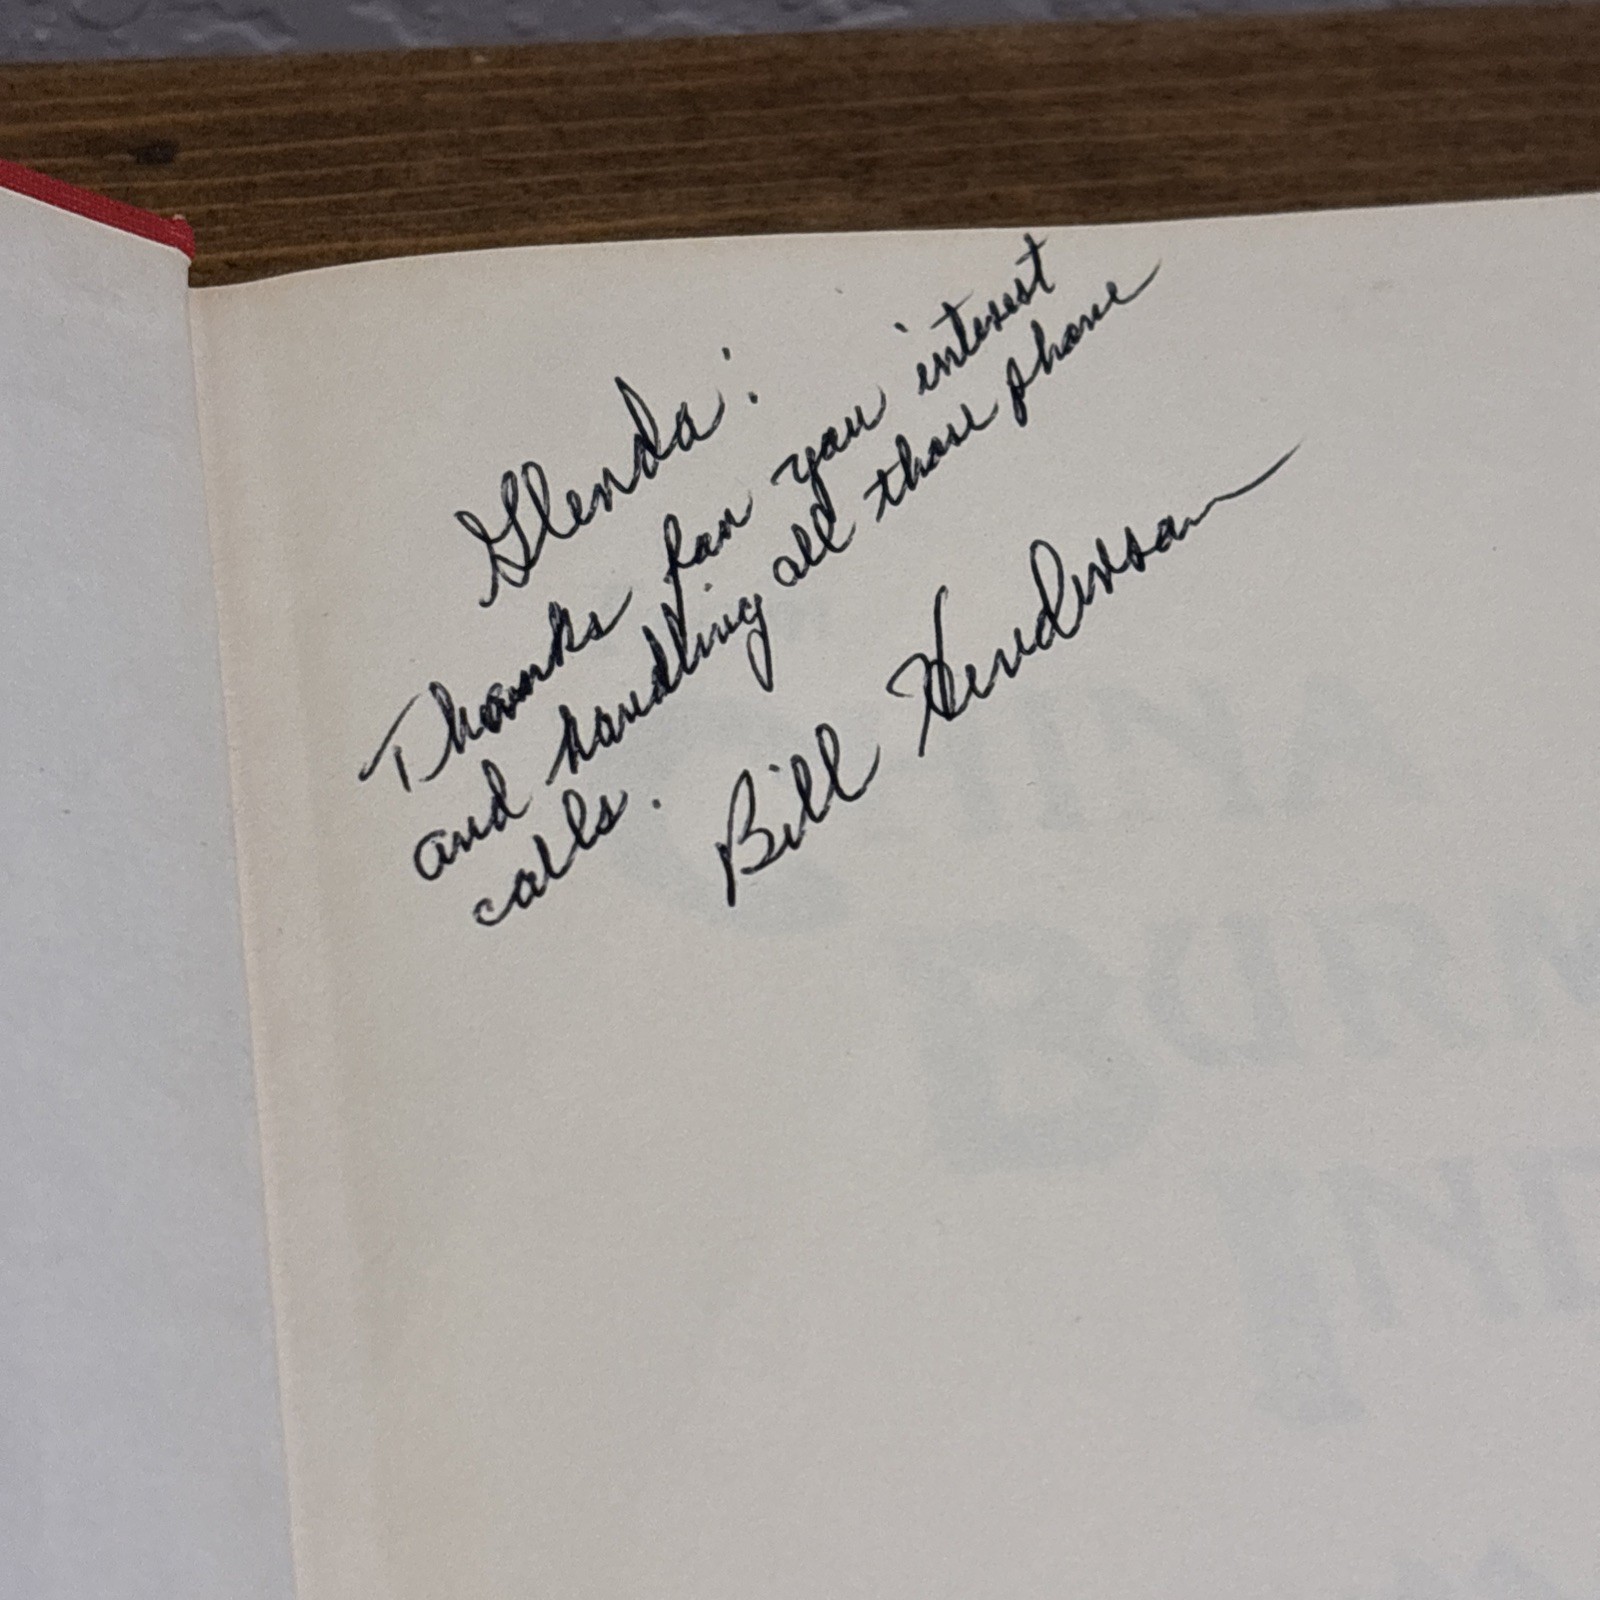 Glenda:
Thanks for you interest
and handling all those phone
calls.
Bill Henderson